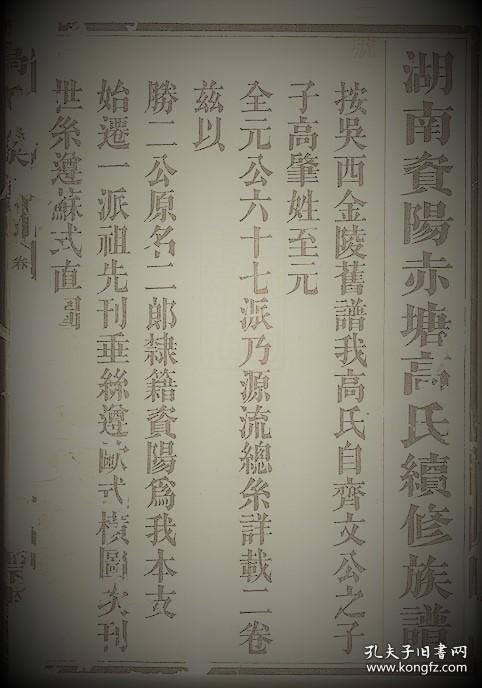 湖南資陽赤塘高氏續修族譜
按吳西金陵舊譜我高氏自齊文公之子
子高肇姓至元
全元公六十七派乃源流總系詳載二卷
茲以
勝二公原名二郎隸籍資陽爲我本支
始遷一派祖先刊垂絲遵歐式橫圖次刊
世系遵蘇式直圖
卷
孔夫子旧书网
www.kongfz.com